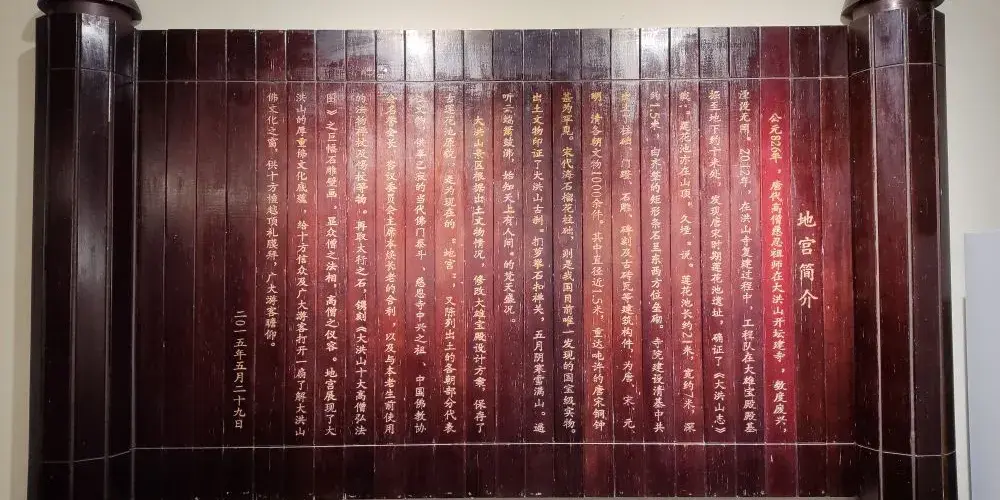 地宫简介
公元826年，唐代高僧慈忍祖师在大洪山开坛建寺，数度废兴，
湮没无闻。2012年，在洪山寺复建过程中，工程队在大雄宝殿殿基
掘至地下约十米处，发现唐宋时期莲花池遗址，确证了《大洪山志》
载：莲花池亦在山顶，久堙。说。莲花池长约21米，宽约7米，深
约1.5米，由齐整的矩形条石呈东西方位垒砌。寺院建设清基中共
出土柱础、门磴、石雕、碑刻及古砖瓦等建筑构件，为唐、宋、元、
明、清各朝文物1000余件。其中直径近1.5米，重达吨许的唐宋铜钟
甚为罕见。宋代涛石榴花柱础，则是我国目前唯一发现的国宝级实物。
出土文物印证了大洪山古刹。扪萝攀石扣禅关，五月阴寒雪满山。遥
听云端箫鼓沸，始知天上有人间。的梵天盛况。
大洪山景区根据出土文物情况，修改大雄宝殿设计方案，保存了
古莲花池原貌，是为现在的。地宫，又陈列出土的各朝部分代表
文物，供奉已寂的当代佛门泰斗、慈恩寺中兴之祖、中国佛教协
会名誉会长、咨议委员会主席本焕长老的舍利，以及与本老生前使用
的法物禅杖及愣杖等物。再取太行之石，镌刻《大洪山十大高僧弘法
图》之巨幅石雕壁画。显众僧之法相，高僧之仪容。地宫展现了大
洪山的厚重佛文化底蕴，给十方信众及广大游客打开一扇了解大洪山
佛文化之窗，供十方信越顶礼膜拜，广大游客瞻仰。
二〇一五年五月二十九日